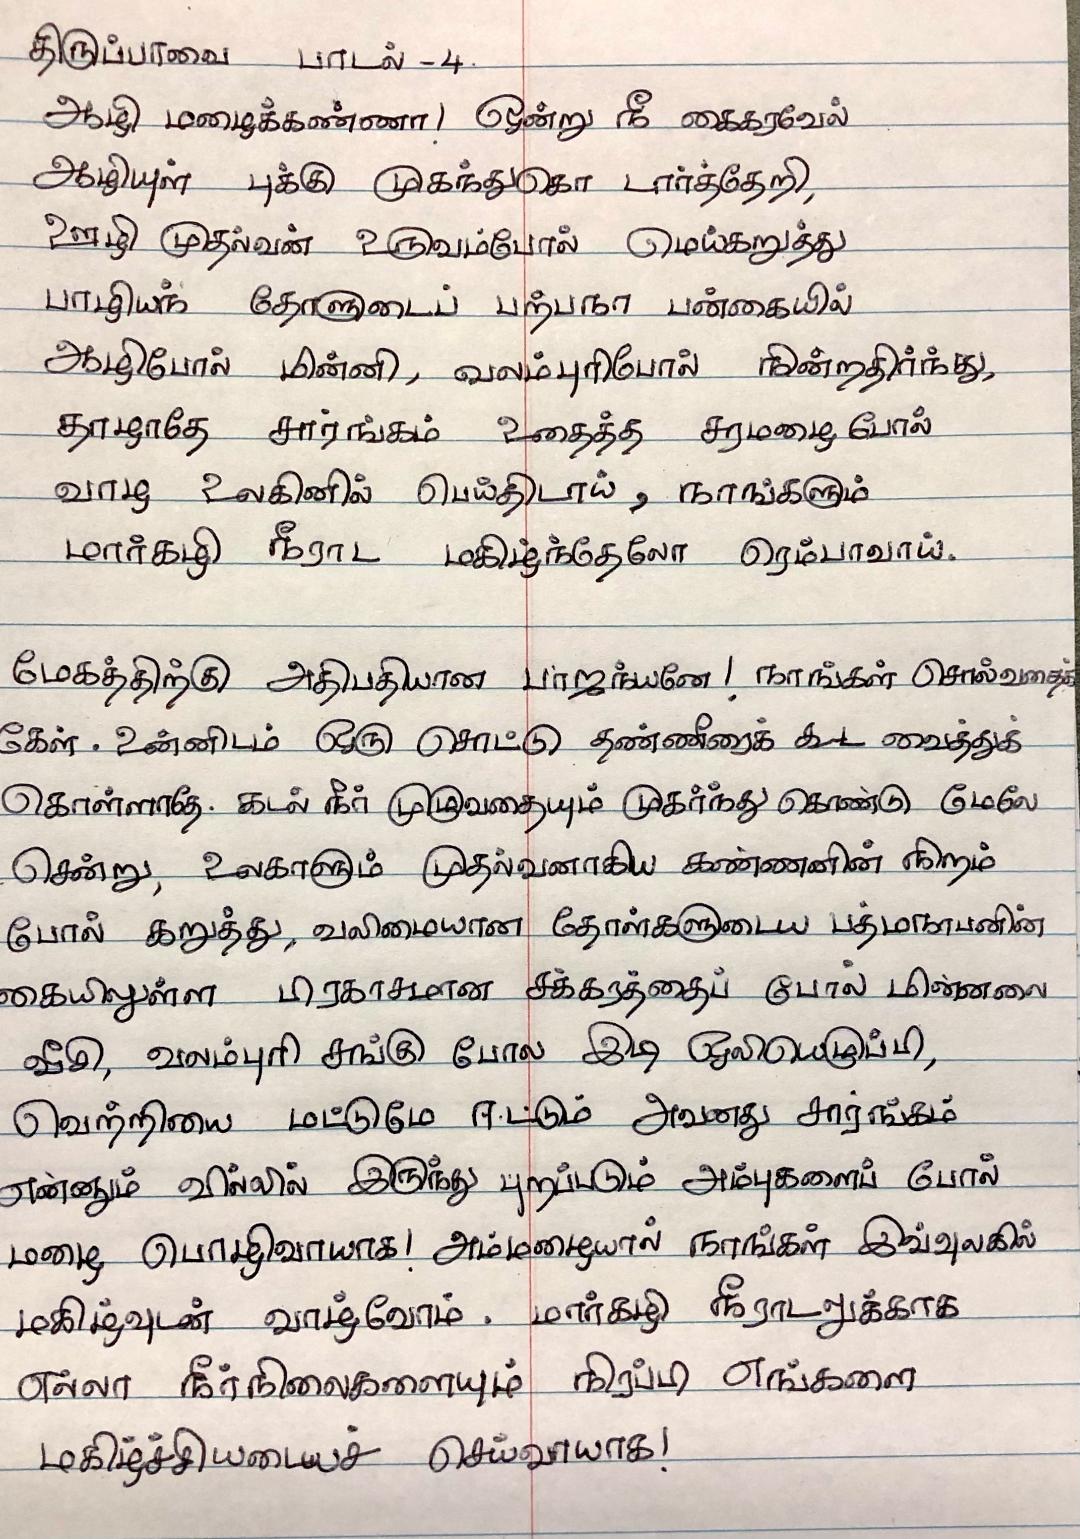 திருப்பாவை பாடல் - 4.
ஆழி மழைக்கண்ணா! ஒன்று நீ கைகரவேல்
ஆழியுள் புக்கு முகந்துகொ டார்த்தேறி,
ஊழி முதல்வன் உருவம்போல் மெய்கறுத்து
பாழியந் தோளுடைப் பற்பநா பன்கையில்
ஆழிபோல் மின்னி, வலம்புரிபோல் நின்றதிர்ந்து,
தாழாதே சார்ங்கம் உதைத்த சரமழை போல்
வாழ உலகினில் பெய்திடாய், நாங்களும்
மார்கழி நீராட மகிழ்ந்தேலோ ரெம்பாவாய்.
மேகத்திற்கு அதிபதியான பர்ஜந்யனே! நாங்கள் சொல்வதைக்
கேள். உன்னிடம் ஒரு சொட்டு தண்ணீரைக் கூட வைத்துக்
கொள்ளாதே. கடல் நீர் முழுவதையும் முகர்ந்து கொண்டு மேலே
சென்று, உலகாளும் முதல்வனாகிய கண்ணனின் நிறம்
போல் கறுத்து, வலிமையான தோள்களுடைய பத்மநாபனின்
கையிலுள்ள பிரகாசமான சக்கரத்தைப் போல் மின்னலை
வீசி, வலம்புரி சங்கு போல இடி ஒலியெழுப்பி,
வெற்றியை மட்டுமே ஈட்டும் அவனது சார்ங்கம்
என்னும் வில்லில் இருந்து புறப்படும் அம்புகளைப் போல்
மழை பொழிவாயாக! அம்மழையால் நாங்கள் இவ்வுலகில்
மகிழ்வுடன் வாழ்வோம். மார்கழி நீராடலுக்காக
எல்லா நீர்நிலைகளையும் நிரப்பி எங்களை
மகிழ்ச்சியடையச் செய்வாயாக!